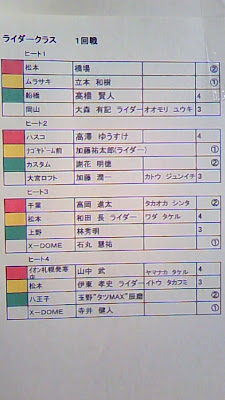 ライダークラス 1回戦
ヒート1
松本 橋場 ②
ムラサキ 立本 和樹 ①
船橋 高橋 賢人 4
岡山 大森 有記 ライダー オオモリ ユウキ 3
ヒート2
ハスコ 高澤 ゆうすけ 4
ナゴヤドーム前 加藤祐太郎(ライダー) ①
カスタム 謝花 明徳 ②
大宮ロフト 加藤 潤一 カトウ ジュンイチ 3
ヒート3
千葉 高岡 進太 タカオカ シンタ ②
松本 和田 長 ライダー ワダ タケル 4
上野 林秀明 3
X-DOME 石丸 慧祐 ①
ヒート4
イオン札幌発寒店 山中 武 ヤマナカ タケル 4
松本 伊東 孝史 ライダー イトウ タカフミ 3
八王子 玉野"タツMAX"辰磨 ②
X-DOME 寺井 健人 ①